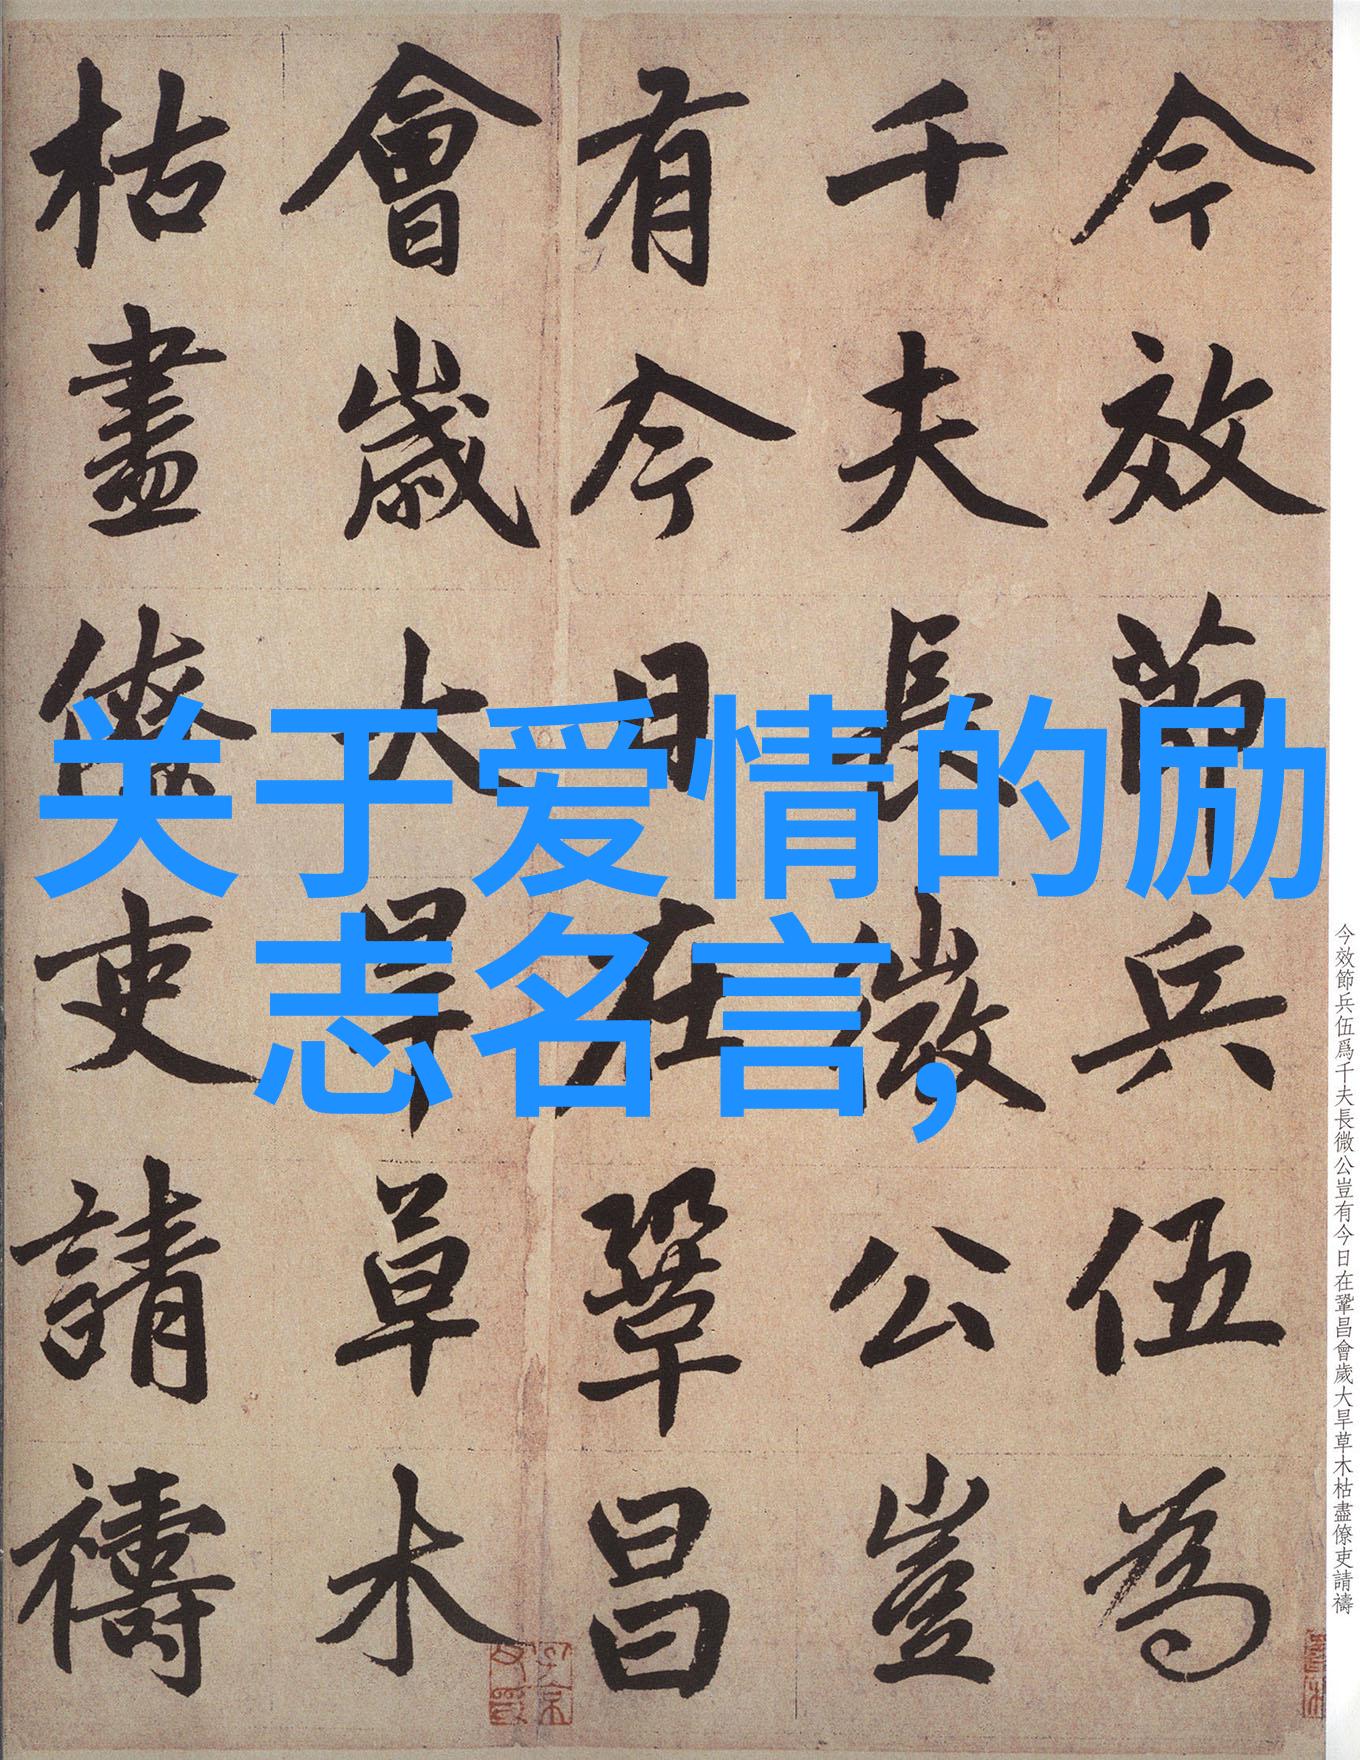 关于爱情的励
志名言,
今效節兵伍為
千夫長微公豈
有今日在鞏昌
會歲大旱草木
枯盡僚吏請禱
今效節兵伍爲千夫長微公豈有今日在鞏昌會歲大旱草木枯盡僚吏請禱